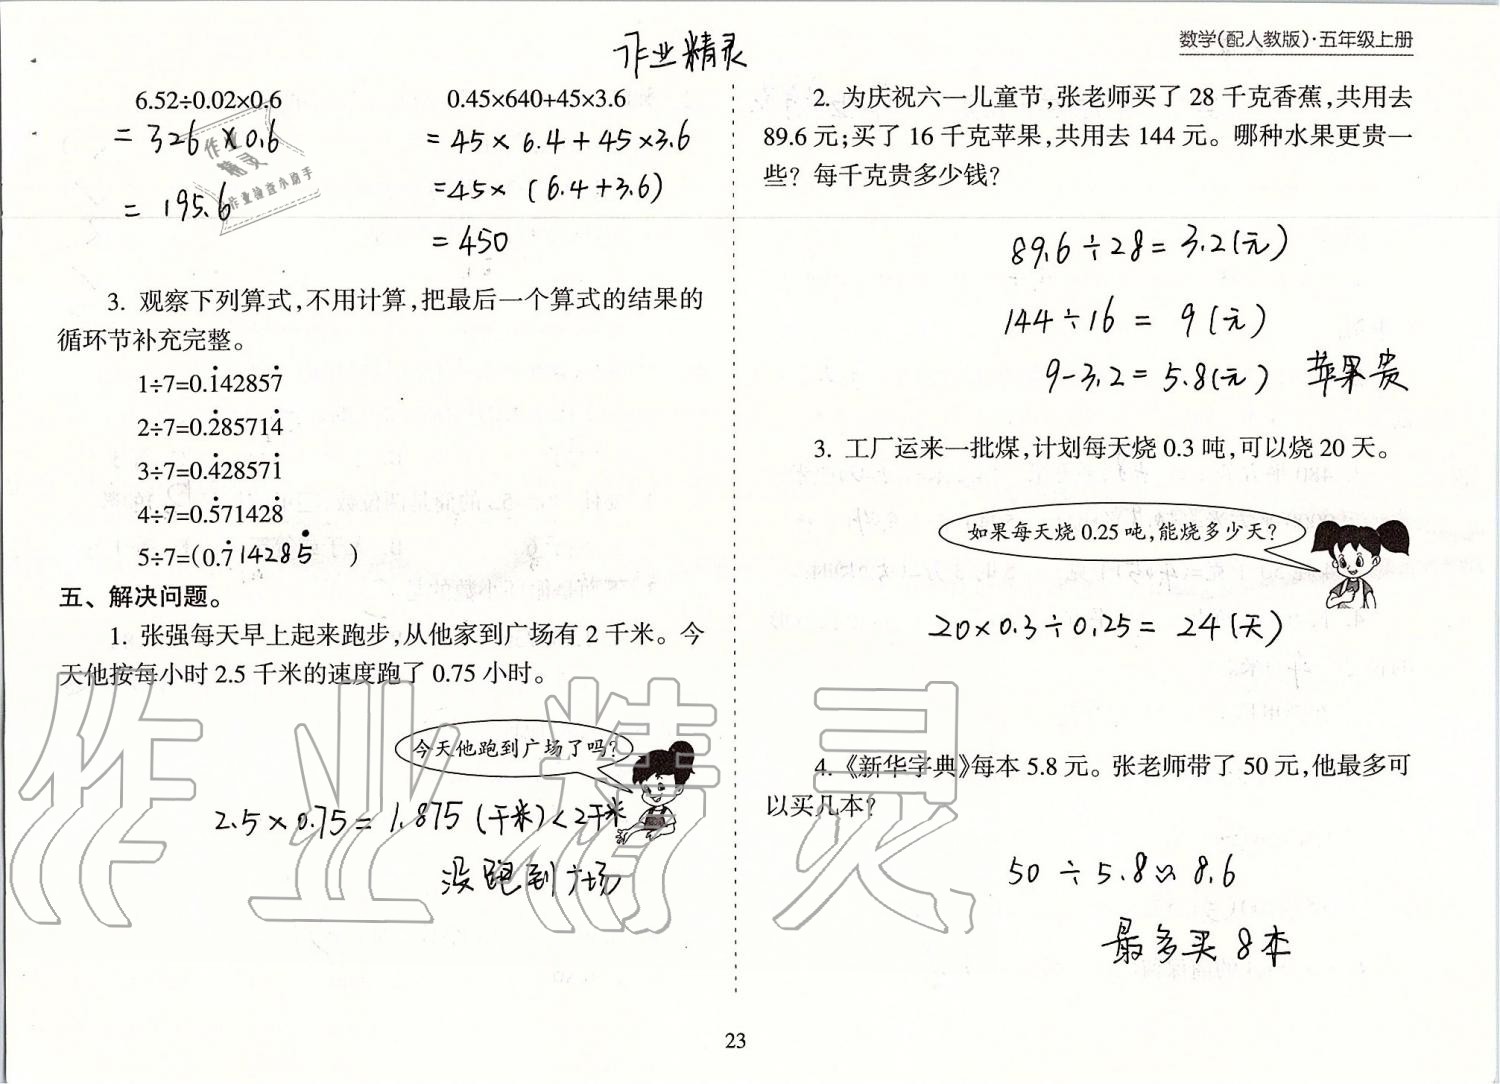 作业精灵
数学(配人教版)·五年级上册
6.52÷0.02×0.6
= 326 × 0.6
= 195.6
作业
精灵
作业检查小助手
0.45×640+45×3.6
= 45 × 6.4 + 45 × 3.6
= 45 × (6.4+3.6)
= 450
3. 观察下列算式,不用计算,把最后一个算式的结果的
循环节补充完整。
1÷7=0.1̇42857̇
2÷7=0.2̇85714̇
3÷7=0.4̇28571̇
4÷7=0.5̇71428̇
5÷7=(0.7̇14285̇ )
五、解决问题。
1. 张强每天早上起来跑步,从他家到广场有 2 千米。今
天他按每小时 2.5 千米的速度跑了 0.75 小时。
今天他跑到广场了吗?
2.5 × 0.75 = 1.875 (千米) < 2千米
没跑到广场
2. 为庆祝六一儿童节,张老师买了 28 千克香蕉,共用去
89.6 元;买了 16 千克苹果,共用去 144 元。哪种水果更贵一
些? 每千克贵多少钱?
89.6 ÷ 28 = 3.2 (元)
144 ÷ 16 = 9 (元)
9 - 3.2 = 5.8 (元) 苹果贵
3. 工厂运来一批煤,计划每天烧 0.3 吨,可以烧 20 天。
如果每天烧 0.25 吨,能烧多少天?
20 × 0.3 ÷ 0.25 = 24 (天)
4.《新华字典》每本 5.8 元。张老师带了 50 元,他最多可
以买几本?
50 ÷ 5.8 ≈ 8.6
最多买 8本
作业精灵
23